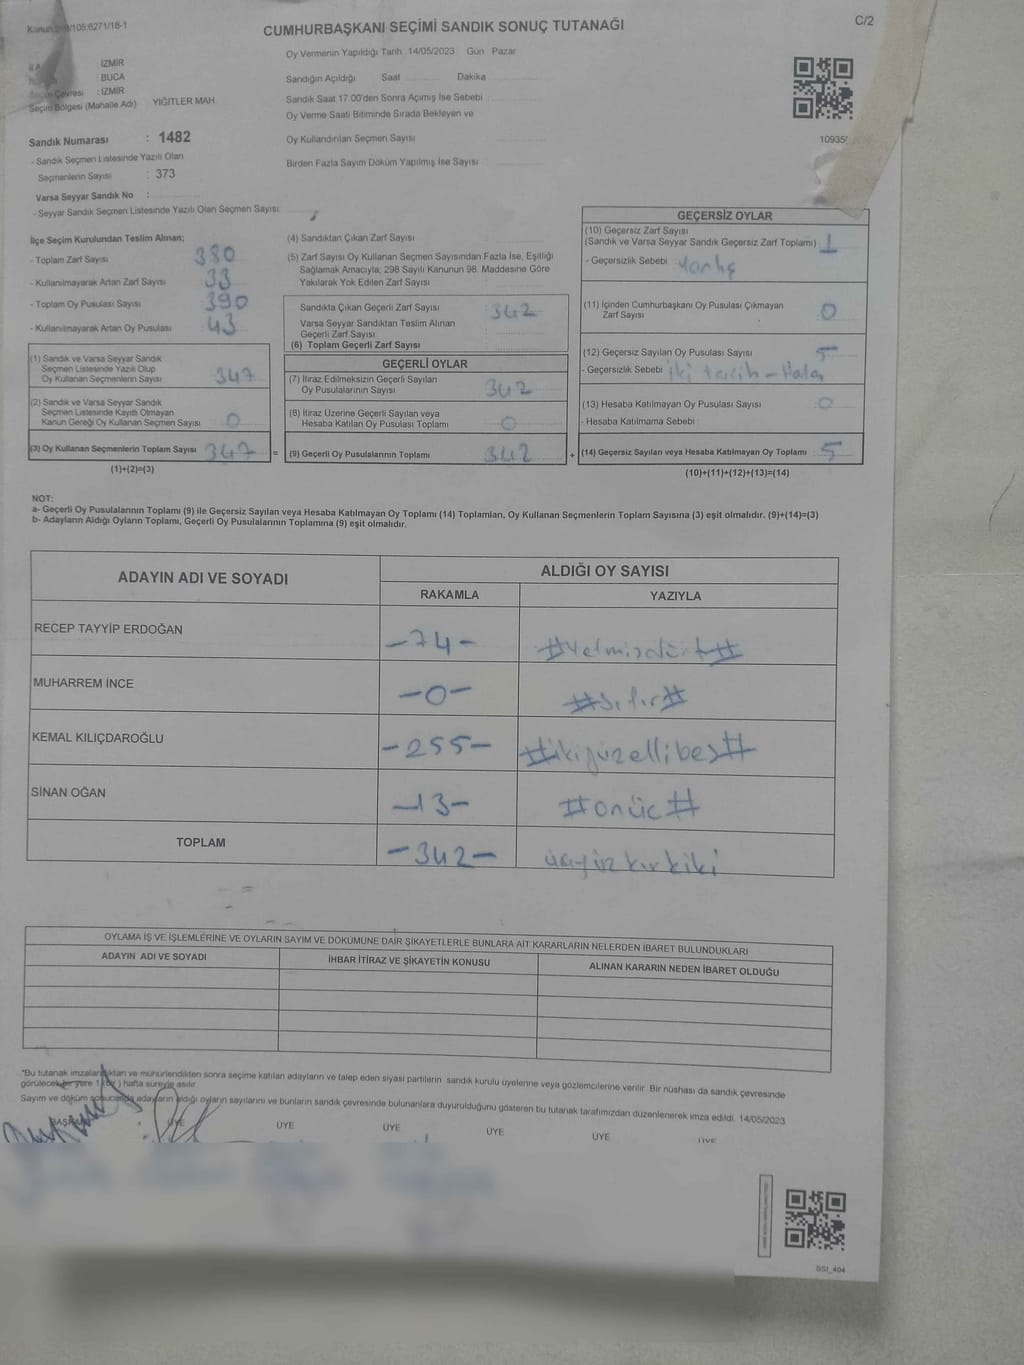 CUMHURBAŞKANI SEÇİMİ SANDIK SONUÇ TUTANAĞI
C/2
Oy Vermenin Yapıldığı Tarih 14/05/2023 Gün Pazar
İZMİR
BUCA
Seçim Çevresi : İZMİR
Seçim Bölgesi (Mahalle Adı) YİĞİTLER MAH.
Sandığın Açıldığı Saat Dakika
Sandık Saat 17.00'den Sonra Açımış İse Sebebi
Oy Verme Saati Bitiminde Sırada Bekleyen ve
Oy Kullandırılan Seçmen Sayısı
Birden Fazla Sayım Döküm Yapılmış İse Sayısı
Sandık Numarası : 1482
- Sandık Seçmen Listesinde Yazılı Olan
Seçmenlerin Sayısı : 373
Varsa Seyyar Sandık No :
- Seyyar Sandık Seçmen Listesinde Yazılı Olan Seçmen Sayısı
İlçe Seçim Kurulundan Teslim Alınan;
- Toplam Zarf Sayısı 380
- Kullanılmayarak Artan Zarf Sayısı 33
- Toplam Oy Pusulası Sayısı 390
- Kullanılmayarak Artan Oy Pusulası 43
(1) Sandık ve Varsa Seyyar Sandık
Seçmen Listesinde Yazılı Olup
Oy Kullanan Seçmenlerin Sayısı 347
(2) Sandık ve Varsa Seyyar Sandık
Seçmen Listesinde Kayıtlı Olmayan
Kanun Gereği Oy Kullanan Seçmen Sayısı 0
(3) Oy Kullanan Seçmenlerin Toplam Sayısı 347 =
(1)+(2)=(3)
(4) Sandıktan Çıkan Zarf Sayısı
(5) Zarf Sayısı Oy Kullanan Seçmen Sayısından Fazla İse, Eşitliği
Sağlamak Amacıyla, 298 Sayılı Kanunun 98. Maddesine Göre
Yakılarak Yok Edilen Zarf Sayısı
Sandıkta Çıkan Geçerli Zarf Sayısı 342
Varsa Seyyar Sandıktan Teslim Alınan
Geçerli Zarf Sayısı
(6) Toplam Geçerli Zarf Sayısı
GEÇERLİ OYLAR
(7) İtiraz Edilmeksizin Geçerli Sayılan
Oy Pusulalarının Sayısı 342
(8) İtiraz Üzerine Geçerli Sayılan veya
Hesaba Katılan Oy Pusulası Toplamı 0
(9) Geçerli Oy Pusulalarının Toplamı 342 +
GEÇERSİZ OYLAR
(10) Geçersiz Zarf Sayısı
(Sandık ve Varsa Seyyar Sandık Geçersiz Zarf Toplamı) 1
- Geçersizlik Sebebi Yanlış
(11) İçinden Cumhurbaşkanı Oy Pusulası Çıkmayan
Zarf Sayısı 0
(12) Geçersiz Sayılan Oy Pusulası Sayısı 5
- Geçersizlik Sebebi iki tercih -
(13) Hesaba Katılmayan Oy Pusulası Sayısı 0
- Hesaba Katılmama Sebebi
(14) Geçersiz Sayılan veya Hesaba Katılmayan Oy Toplamı 5
(10)+(11)+(12)+(13)=(14)
NOT:
a- Geçerli Oy Pusulalarının Toplamı (9) ile Geçersiz Sayılan veya Hesaba Katılmayan Oy Toplamı (14) Toplamları, Oy Kullanan Seçmenlerin Toplam Sayısına (3) eşit olmalıdır. (9)+(14)=(3)
b- Adayların Aldığı Oyların Toplamı, Geçerli Oy Pusulalarının Toplamına (9) eşit olmalıdır.
ADAYIN ADI VE SOYADI ALDIĞI OY SAYISI
RAKAMLA YAZIYLA
RECEP TAYYİP ERDOĞAN -74- #Yetmişdört#
MUHARREM İNCE -0- #Sıfır#
KEMAL KILIÇDAROĞLU -255- #ikiyüzellibeş#
SİNAN OĞAN -13- #onüc#
TOPLAM -342- üçyüzkırkiki
OYLAMA İŞ VE İŞLEMLERİNE VE OYLARIN SAYIM VE DÖKÜMÜNE DAİR ŞİKAYETLERLE BUNLARA AİT KARARLARIN NELERDEN İBARET BULUNDUKLARI
ADAYIN ADI VE SOYADI İHBAR İTİRAZ VE ŞİKAYETİN KONUSU ALINAN KARARIN NEDEN İBARET OLDUĞU
*Bu tutanak imzalandıktan ve mühürlendikten sonra seçime katılan adayların ve talep eden siyasi partilerin sandık kurulu üyelerine veya gözlemcilerine verilir. Bir nüshası da sandık çevresinde
görülecek bir yere 1 (bir) hafta süreyle asılır.
Sayım ve döküm sonucunda adayların aldığı oyların sayılarını ve bunların sandık çevresinde bulunanlara duyurulduğunu gösteren bu tutanak tarafımızdan düzenlenerek imza edildi. 14/05/2023
BAŞKAN ÜYE ÜYE ÜYE ÜYE ÜYE ÜYE
SSI_404